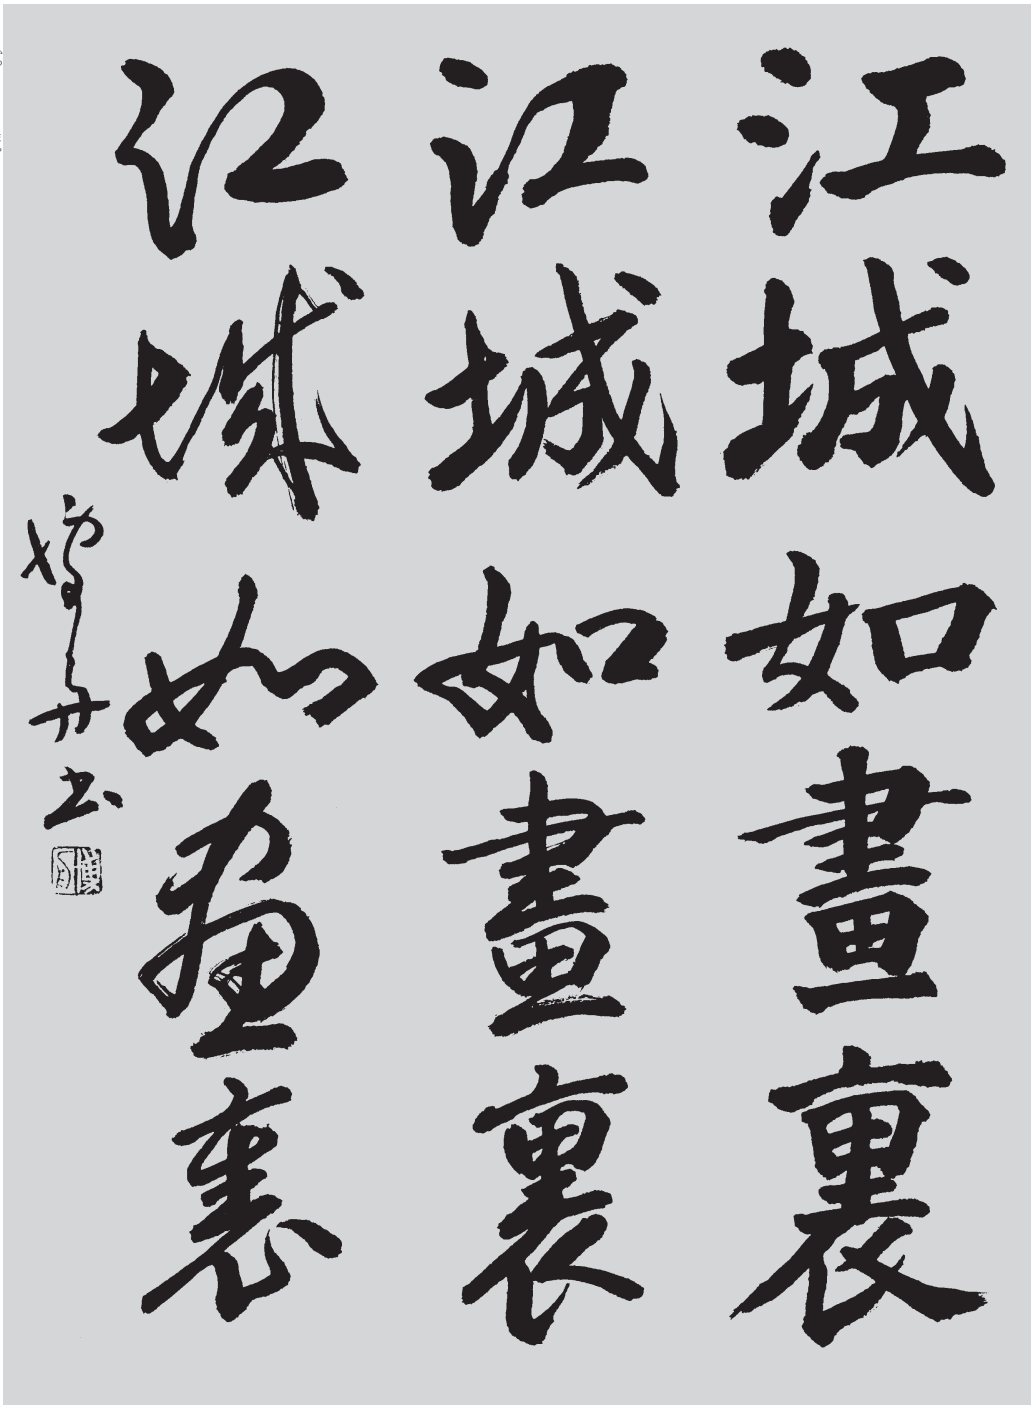 江城如畫裏
江城如畫裏
江城如畫裏
書